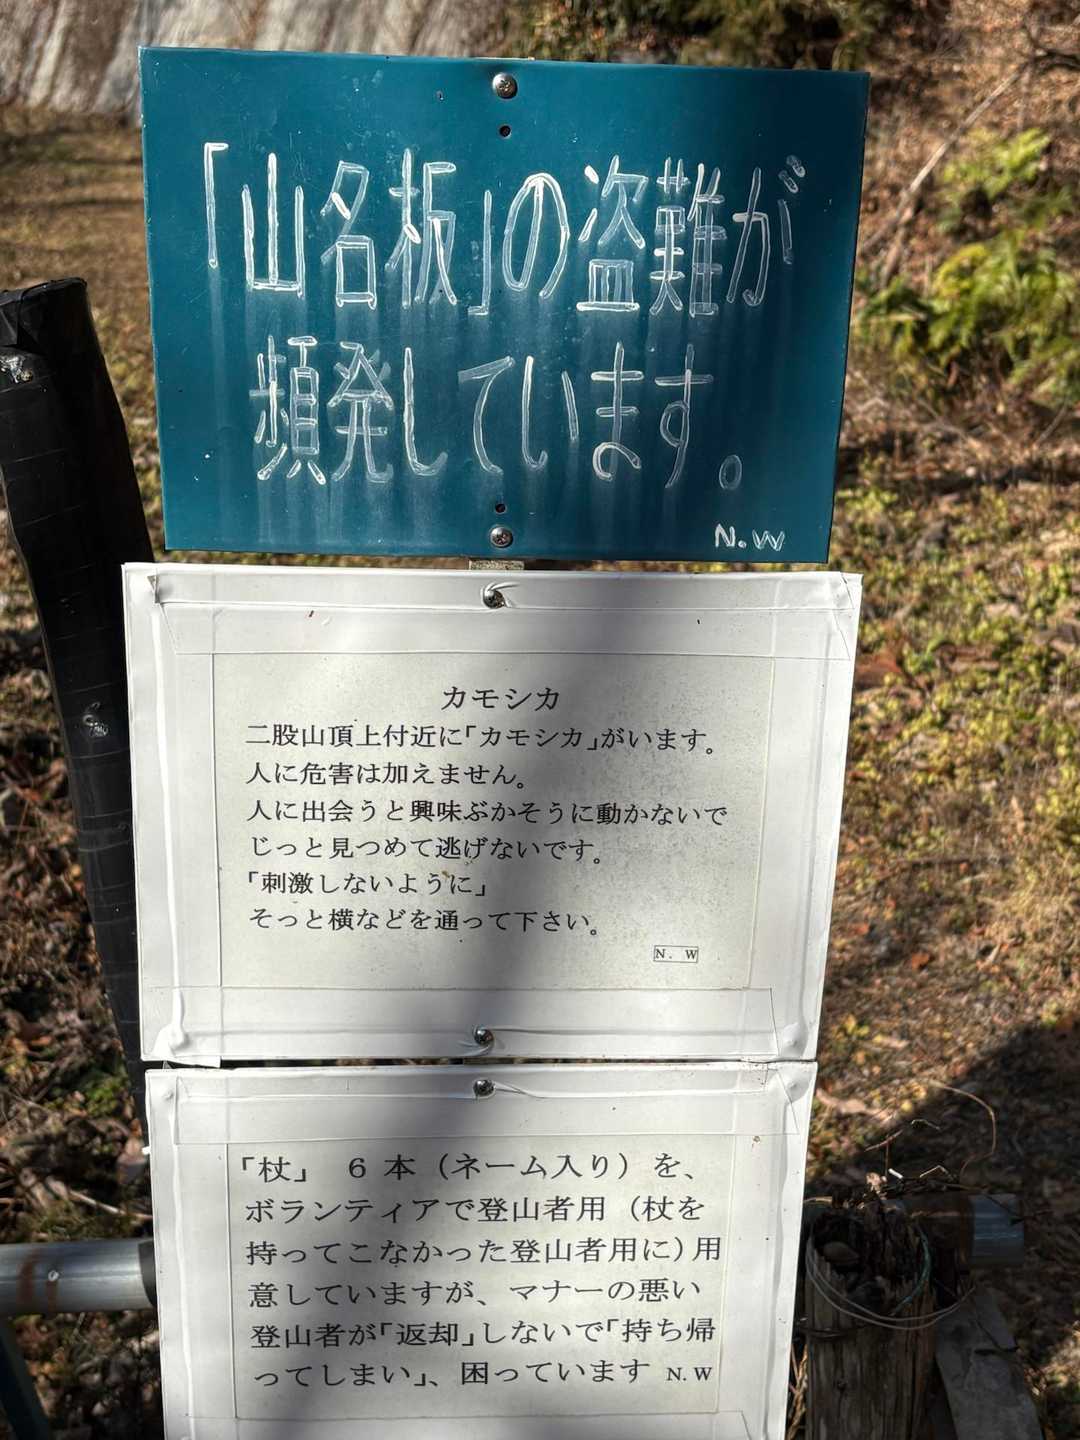 「山名板」の盗難が
頻発しています。
N.W
カモシカ
二股山頂上付近に「カモシカ」がいます。
人に危害は加えません。
人に出会うと興味ぶかそうに動かないで
じっと見つめて逃げないです。
「刺激しないように」
そっと横などを通って下さい。
N. W
「杖」 6 本 (ネーム入り) を、
ボランティアで登山者用 (杖を
持ってこなかった登山者用に) 用
意していますが、マナーの悪い
登山者が「返却」しないで「持ち帰
ってしまい」、困っています N.W